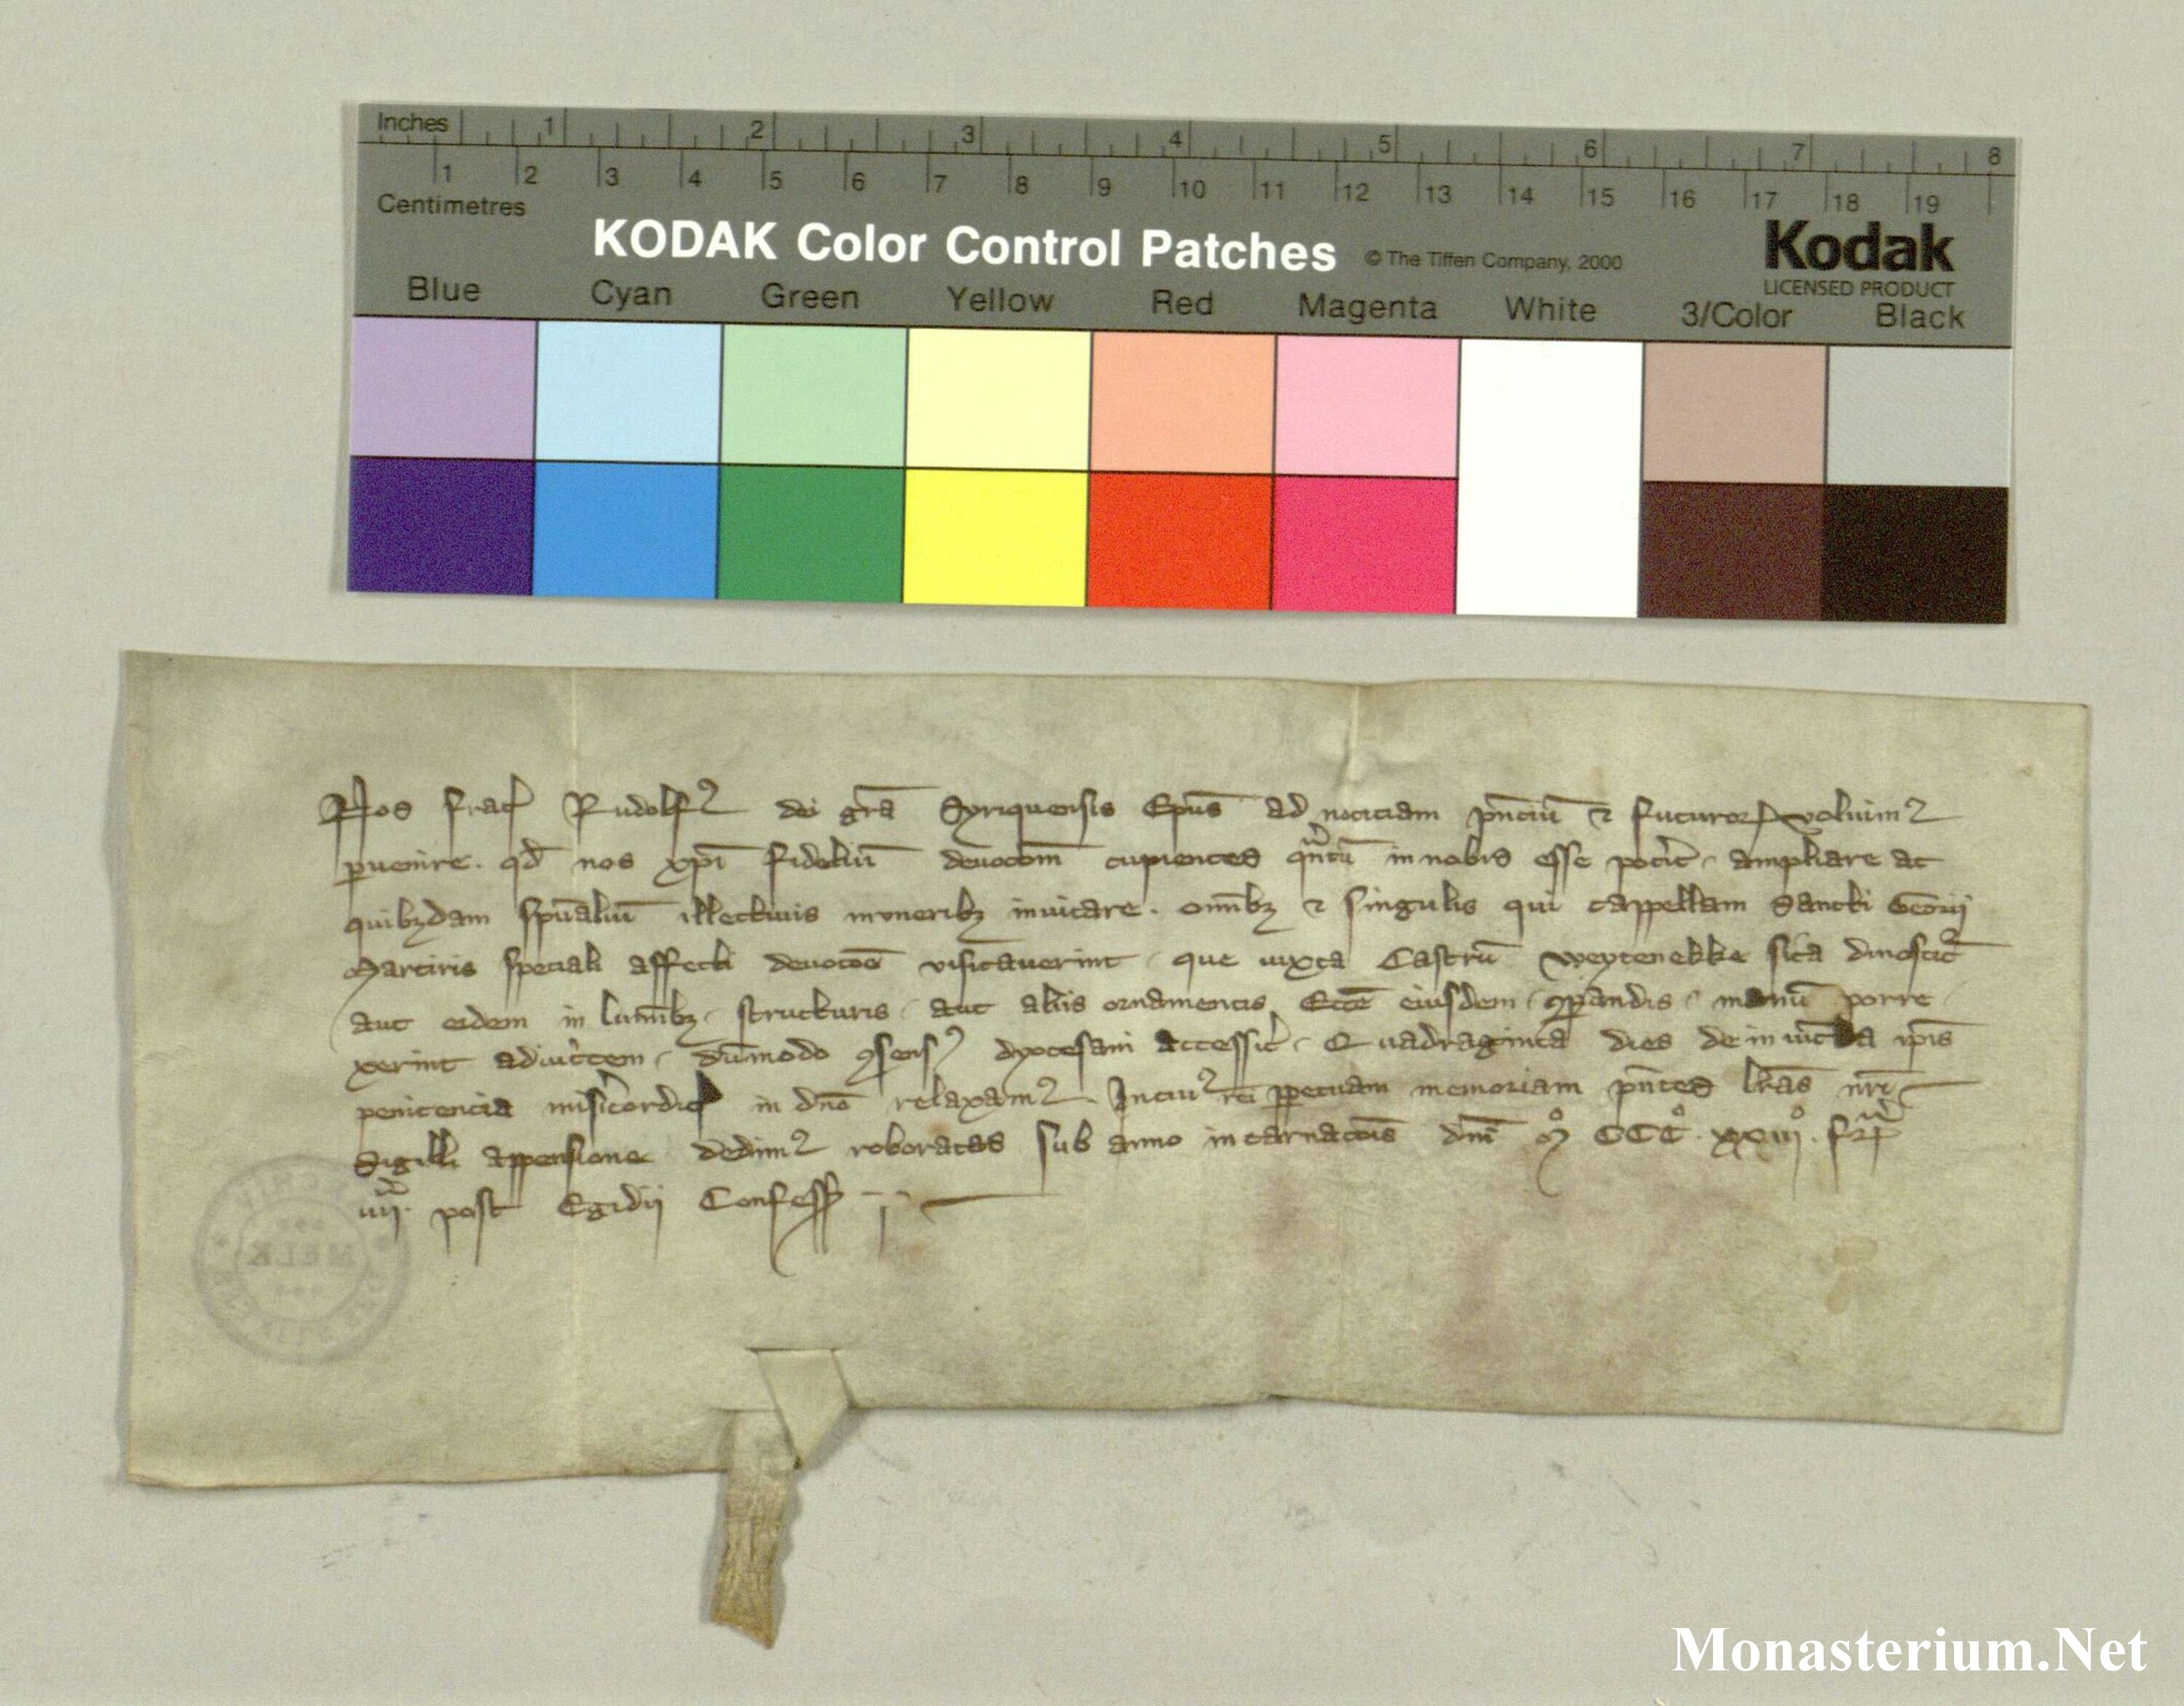 Inches 1 2 3 4 5 6 7 8
1 2 3 4 5 6 7 8 9 10 11 12 13 14 15 16 17 18 19
Centimetres
KODAK Color Control Patches © The Tiffen Company, 2000 Kodak
LICENSED PRODUCT
Blue Cyan Green Yellow Red Magenta White 3/Color Black
Nos frat̄ Rudolfꝰ dei gr̄a Syriquensis Ep̄us ad noticiam pn̄ciū ⁊ futuroꝝ volumꝰ
ꝑuenire. qd̄ nos xp̄i fideliū deuoc̄om̄ cupientes qn̄tū in nobis esse pot̄it ampliare ac
quibꝫdam sp̄ualiū illectiuis muneribꝫ inuitare. om̄ibꝫ ⁊ singulis qui cappellam Sancti Georij
Martiris speciali affecti deuoc̄oē visitauerint que iuxta Castrū Weytenekke sita dinoscit᷑
aut eidem in lumī̄bꝫ structuris aut aliis ornamentis Ecc̄e eiusdem ꝯꝑandis manū porre
xerint adiut̄cem dūmodo ꝯsensꝰ dyocesani accesserit Quadraginta dies de iniūcta ip̄is
penitencia mis̄icorditer in dn̄o relaxamꝰ. In cuiꝰ rei ꝑpetuam memoriam pn̄tes lr̄as nr̄i
Sigilli appensione dedimꝰ roboratas sub anno incarnac̄ois dn̄i M̊ CCC̊ xxiij̊. fr̄ia
iiijᵃ. post Egidij Confess̄
MELK
Monasterium.Net